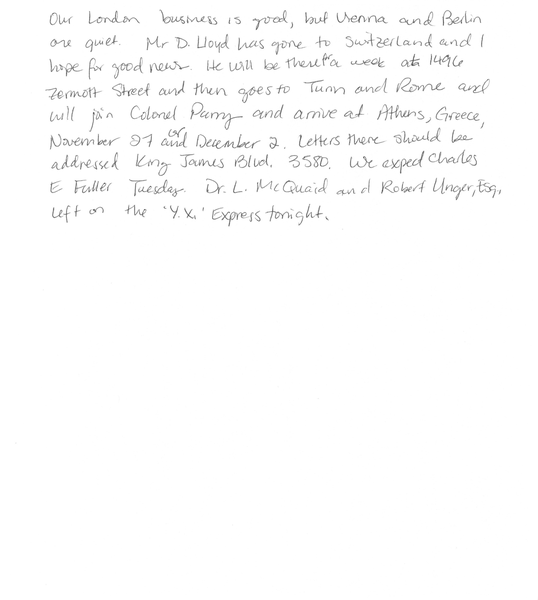 Our London business is good, but Vienna and Berlin
are quiet. Mr D. Lloyd has gone to Switzerland and I
hope for good news. He will be there a week at 1496
Zermott Street and then goes to Turin and Rome and
will join Colonel Parry and arrive at Athens, Greece,
November 27 or December 2. Letters there should be
addressed King James Blvd. 3580. We expect Charles
E Fuller Tuesday. Dr. L. McQuaid and Robert Unger, Esq.,
left on the 'Y.X.' Express tonight.